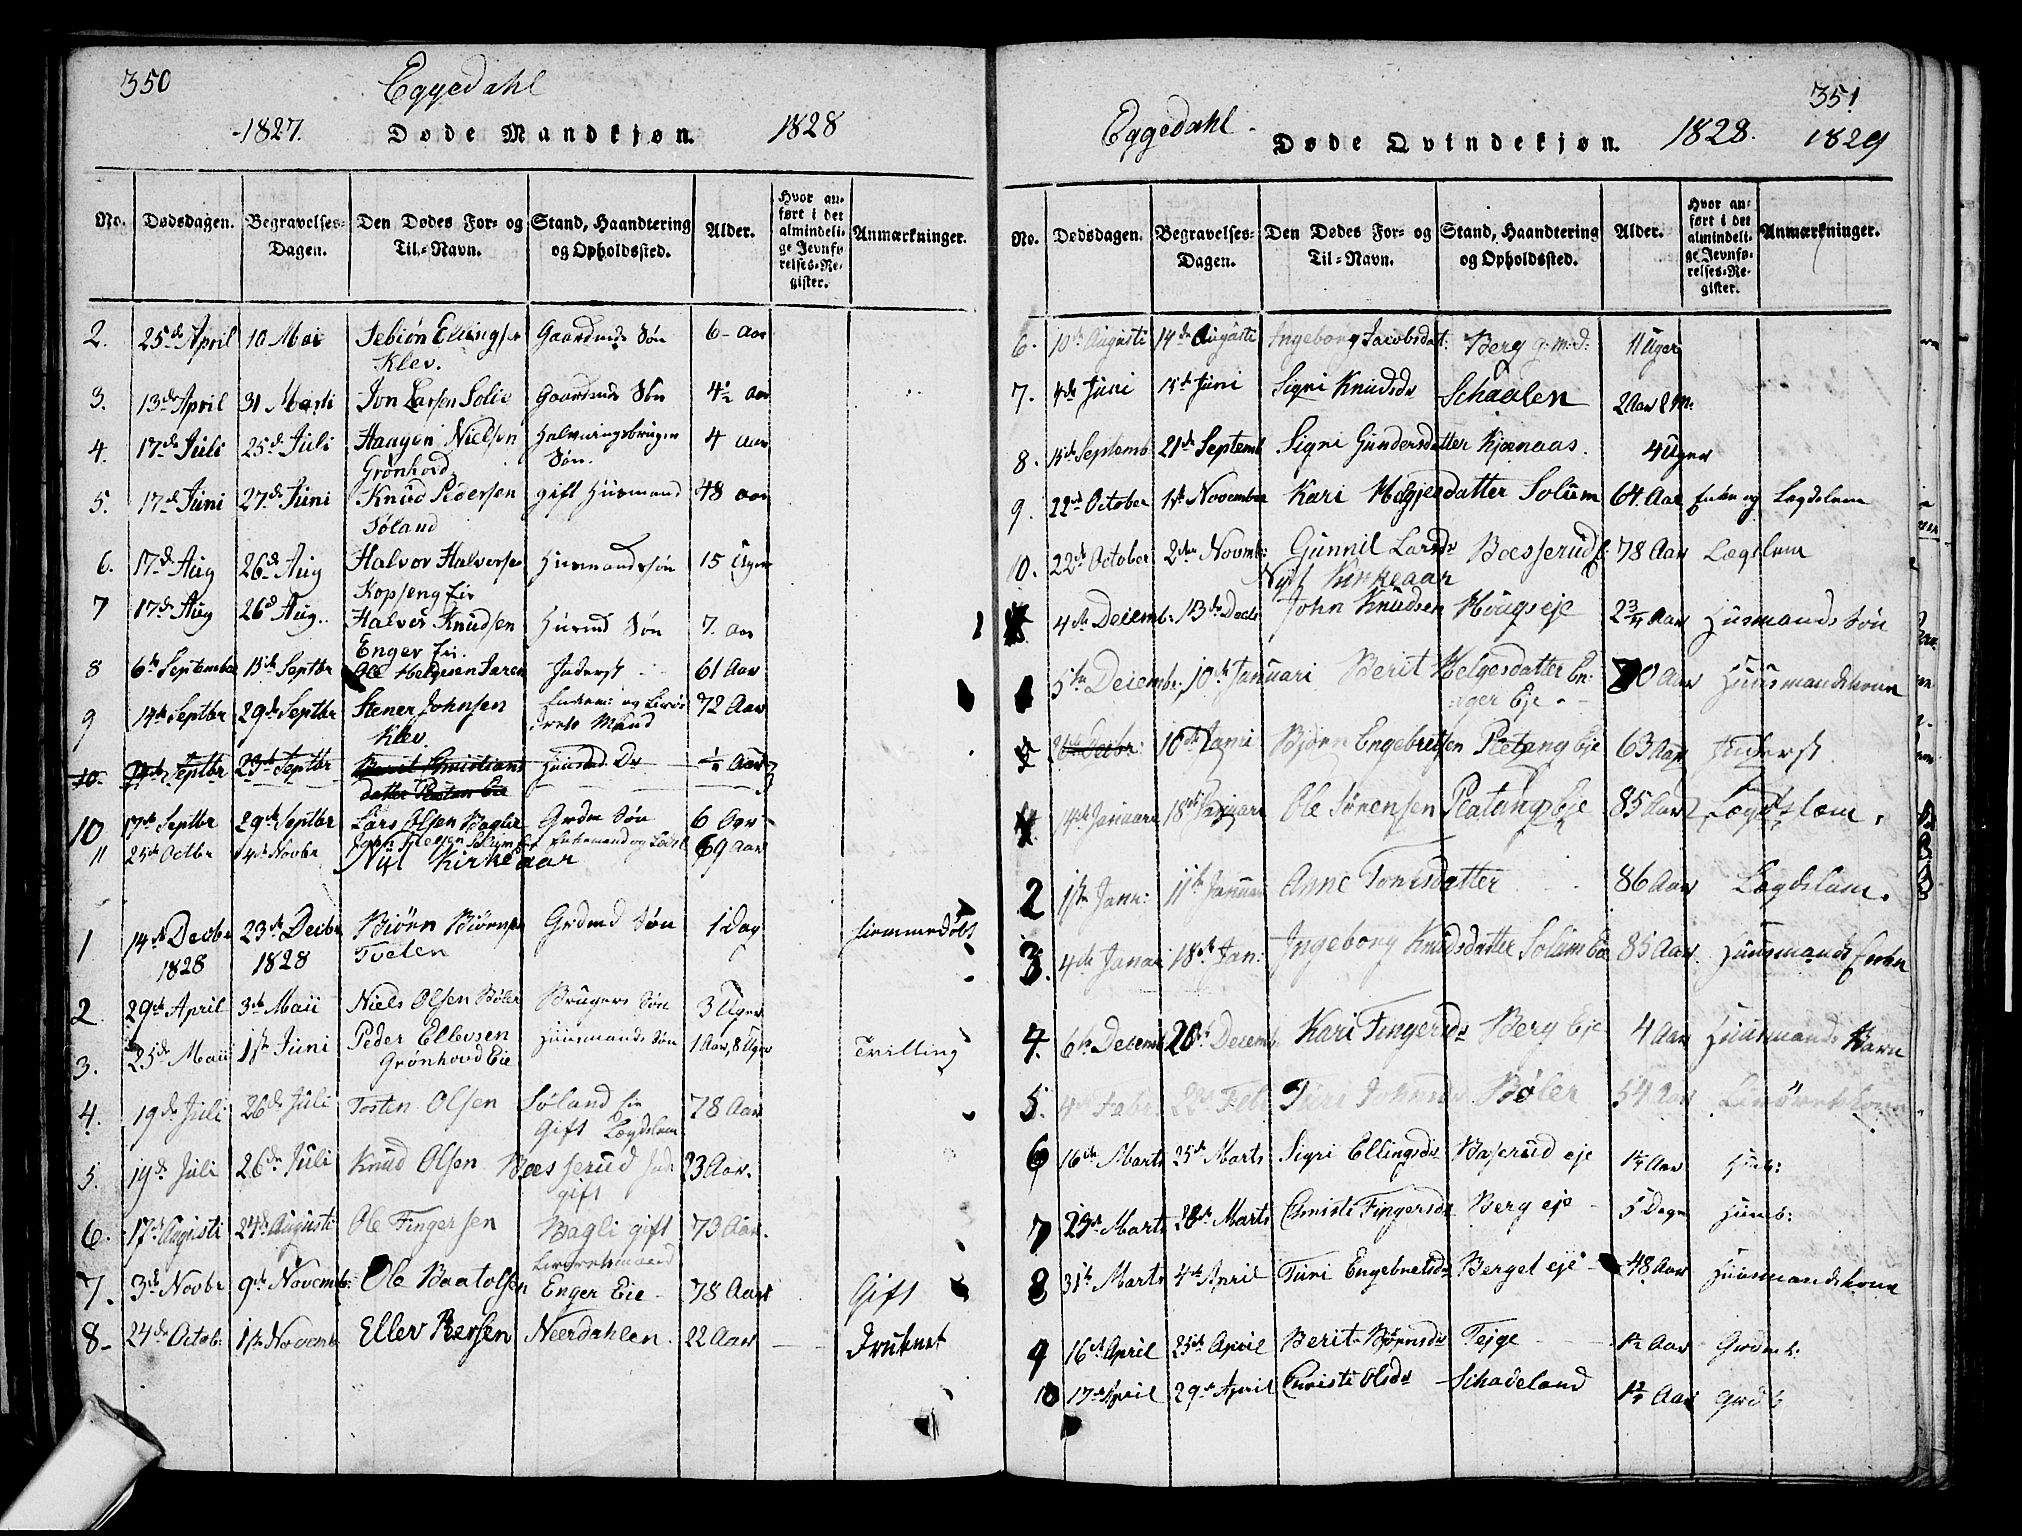 350
Eggedahl
-1827. Døde Mandkjøn. 1828
No. Dødsdagen. Begravelses-Dagen. Den Dødes For- og Til-Navn. Stand, Haandtering og Opholdssted. Alder. Hvor anført i det almindelige Jevnførelses-Register. Anmærkninger.
2. 25de April 10 Mai Sebiøn Ellingsen Gaardmds Søn 6 - Aar
Klev.
3. 13de April 31 Marti Jon Larsen Solie Gaardmds Søn 4½ Aar
4. 17de Juli 25de Juli Haagen Nielsen Halvningsbruger 4 Aar
Grønhovd Søn.
5. 17de Juni 27de Juni Knud Pedersen gift Husmand 48 aar
Søland
6. 17de Aug 26de Aug Halvor Halvorse Husmandssøn 15 Uger
Kopseng Eie
7 17de Aug 26de Aug. Halvor Knudsen Husmd Søn 7. aar
Enger Eie.
8 6te September 15de Septbr Ole Helgesen Inderst 61 Aar
9 14de Septbr 29de Septbr Stener Johnsen Enkem: og 72 Aar
Klev. Mand
10. 14de Septbr 23de Septbr Christians Huusmd Dr ½ Aar
datter Eie
10 17de Septbr 29de Septbr Lars Olsen Baglie Grdm Søn 6 Aar
11 25de Octbr 4de Novbr Enkemand og 69 Aar
Nyt Kirkeaar
1 14de Decbr 23de Decbr Biørn Biørnsen Grdmd Søn 1 Dag hiemmedøbt
1828 1828 Tvelen
2 29de April 3de Maii Niels Olsen Bøler Brugers Søn 3 Uger
3. 25de Maii 1ste Juni Peder Ellevsen Huusmands Søn 1 Aar, 8 Uger Tvilling
Grønhovd Eie
4. 19de Juli 26de Juli Tosten Olsen Søland Eie 78 Aar
Gift Lægdslem
5. 19de Juli 26de Juli Knud Olsen Bæsserud Ind 23 Aar.
gift
6. 17de Augusti 24de Augusti Ole Fingersen Bagli gift 73 Aar.
Livøretsmand
7. 3de Novbr 9de Novemb: Ole Baatolsen Enger Eie - 78 Aar Gift
8- 24de Octob: 1ste Novemb Ellev Persen Neerdahlen. 22 Aar Druknet
351
Eggedahl - Døde Qvindekjøn. 1828. 1829
No. Dødsdagen. Begravelses-Dagen. Den Dødes For- og Til-Navn. Stand, Haandtering og Opholdssted. Alder. Hvor anført i det almindelige Jevnførelses-Register. Anmærkninger.
6. 10de Augusti 14de Augusti Ingeborg Jacobsdat: Berg g:m:d: 11 Uger
7. 4de Juni 15de Juni Sigri Knudsdr Schaalen 2 Aar 8 M:
8. 15de Septemb 21de Septemb Sigri Gundersdatter Kjønaas. 4 Uger
9. 22de October 1ste November Kari Helgjesdatter Solum 64. Aar Enke og Lægdslem
10. 22de October 2den Novmb: Gunnil Larsdr Bæsserud 78 Aar Lægdslem
Nyt Kirkeaar
4de Decemb: 13de Decbr John Knudsen Haugs eje 2¾ Aar Husmands Søn
5te Decembr. 10de Januari Berit Helgesdatter En- 70 Aar Huusmandskone
ger Eje. -
10de Janu Bjørn Engebretsen Pletang Eje 63 Aar Inderst
14de Januari 18de Januari Ole Sørensen Platungs Eje 85 Aar Lægdslem.
2 1ste Janu: 11te Januar Anne Tonesdatter 86 Aar Lægdslem.
3. 4de Januar 18de Jan: Ingeborg Knudsdatter Solum Eie 85 Aar. Huusmands Enke
4. 6te Decemb 28de Decemb Kari Fingersdr Berg Eje 4 Aar Huusmands Barn
5. 4de Febr 22de Feb Turi Johnsdr Bøler 54 Aar Livøretskone
6 16de Marts 25de Marts Sigri Ellingsdr Baserud eje 1¼ Aar Husb:
7 23de Marts 28de Marts Christi Fingersdr Berg eje - 5 Dage Husmb:
8 31te Marts 4de April Turi Engebretsdr Berget eje - 48 Aar Huusmandskone
9 16de April 25de April Berit Bjørnsdr Tejge 1½ Aar Grdm b:
10 17de April 29de April Christi Olsdr Schadeland 1½ Aar Grd b